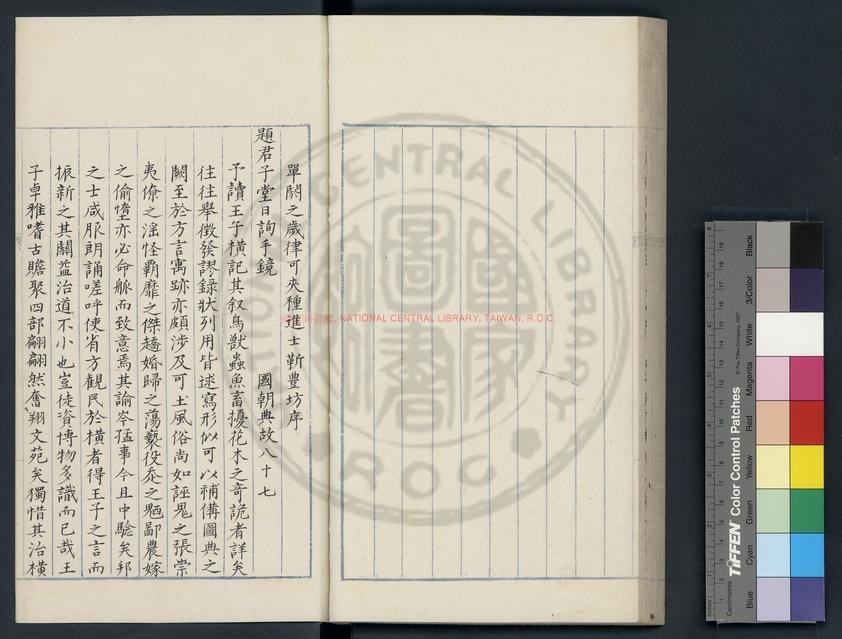 單閼之歲律可夾種進士靳豊坊序
題君子堂日詢手鏡 國朝典故八十七
予讀王子橫記其叙鳥獸蟲魚畜擾花木之奇詭者詳矣
往往舉徵發謬錄狀列用皆逑寫形似可以補備圖典之
闕至於方言寓跡亦頗涉及可土風俗尚如誣鬼之張崇
夷獠之滛怪覇靡之傑趫婚歸之蕩褻役丞之鄙農嫁
之偷墮亦必命觚而致意焉其諭岑猛事今且中驗矣邦
之士咸服朗誦嗟呼使省方觀民於橫者得王子之言而
振新之其關益治道不小也豈徒資博物多識而已哉王
子卓雅嗜古贍聚四部翩翩然奮翔文苑矣獨惜其治橫
NATIONAL CENTRAL LIBRARY, TAIWAN, R.O.C.
NATIONAL CENTRAL LIBRARY
ROC
TIFFEN Color Control Patches
© The Tiffen Company, 2007
Blue Cyan Green Yellow Red Magenta White 3/Color Black
Inches
Centimetres